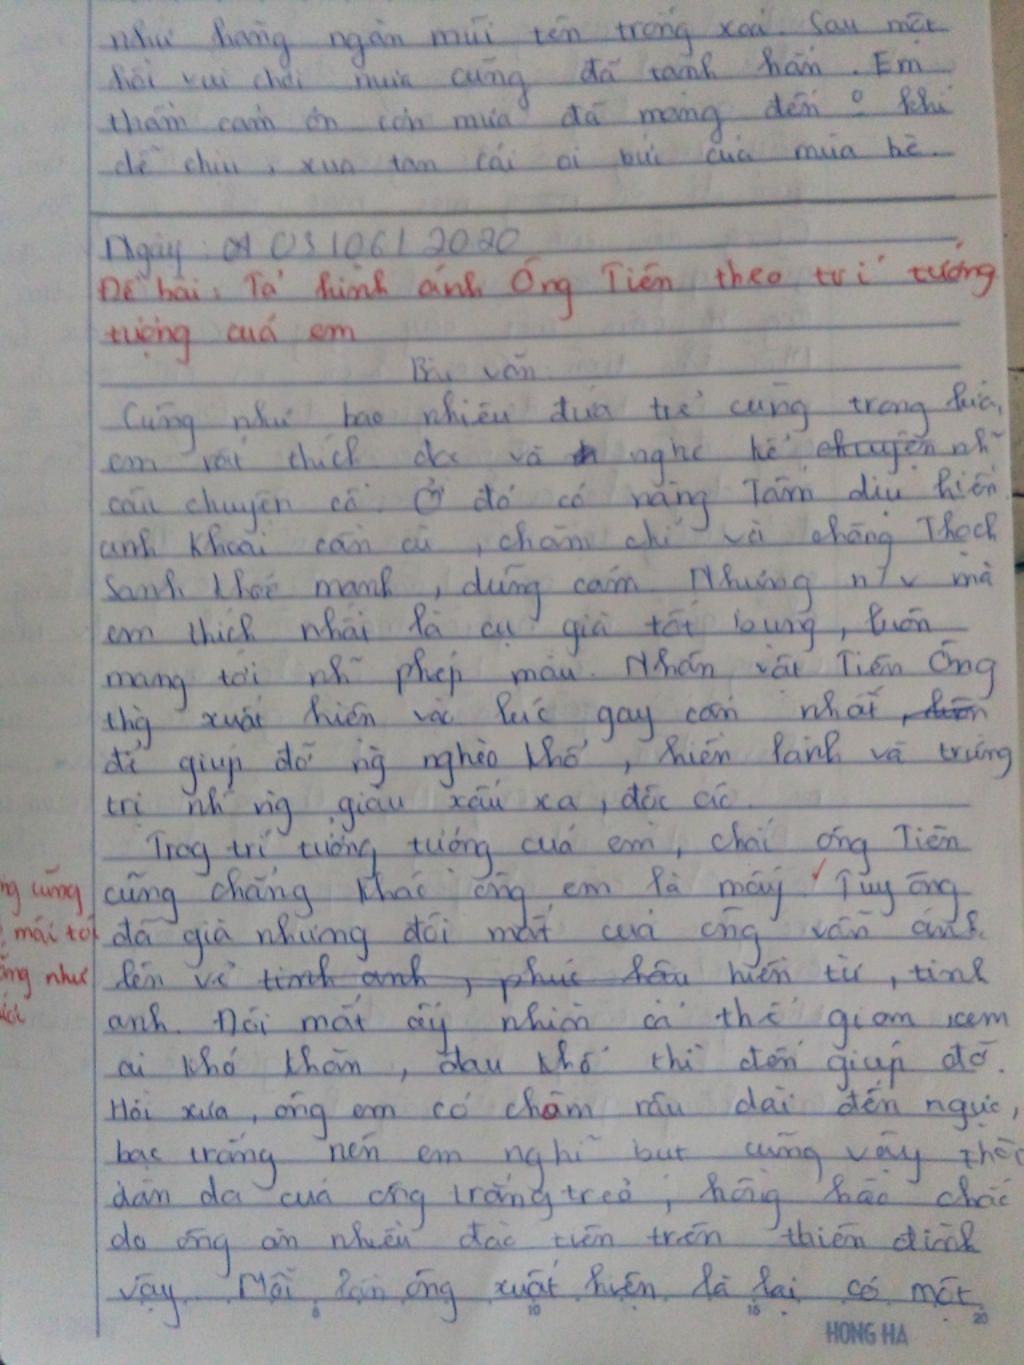 như hàng ngàn mũi tên trắng xoá. Sau một
hồi vui chơi mưa cũng đã tạnh hẳn. Em
thầm cảm ơn cơn mưa đã mang đến o khí
dễ chịu, xua tan cái oi bức của mùa hè.
Ngày 03/06/2020
Đề bài: Tả hình ảnh Ông Tiên theo trí tưởng
tượng của em
Bài văn
Cũng như bao nhiêu đứa trẻ cùng trang lứa,
em rất thích đọc và nghe kể chuyện nh~
câu chuyện cổ. Ở đó có nàng Tấm dịu hiền
anh Khoai cần cù, chăm chỉ và chàng Thạch
Sanh khoẻ mạnh, dũng cảm. Nhưng n/v mà
em thích nhất là cụ già tốt bụng, luôn
mang tới nh~ phép màu. Nhân vật Tiên Ông
thg xuất hiện vào lúc gay cấn nhất,
để giúp đỡ ng nghèo khổ, hiền lành và trừng
trị nh~ ng giàu xấu xa, độc ác.
Trog trí tưởng tượng của em, chắc ông Tiên
cũng chẳng khác ông em là mấy. Tuy ông
đã già nhưng đôi mắt của ông vẫn ánh
lên vẻ tinh anh, phúc hậu hiền từ, tinh
anh. Đôi mắt ấy nhìn cả thế gian xem
ai khó khăn, đau khổ thì đến giúp đỡ.
Hồi xưa, ông em có chòm râu dài đến ngực,
bạc trắng nên em nghĩ bụt cũng vậy thôi
Làn da của ông trắng trẻo, hồng hào chắc
do ông ăn nhiều đào tiên trên thiên đình
vậy. Mỗi lần ông xuất hiện là lại có một
ng cũng
mái tó
ông như
5 10 15 20
HONG HA